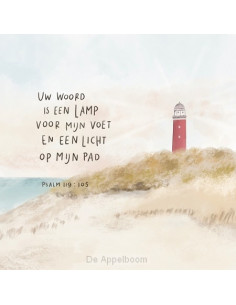 UW WOORD
IS EEN LAMP
VOOR MIJN VOET
EN EEN LICHT
OP MIJN PAD
PSALM 119 : 105
De Appelboom